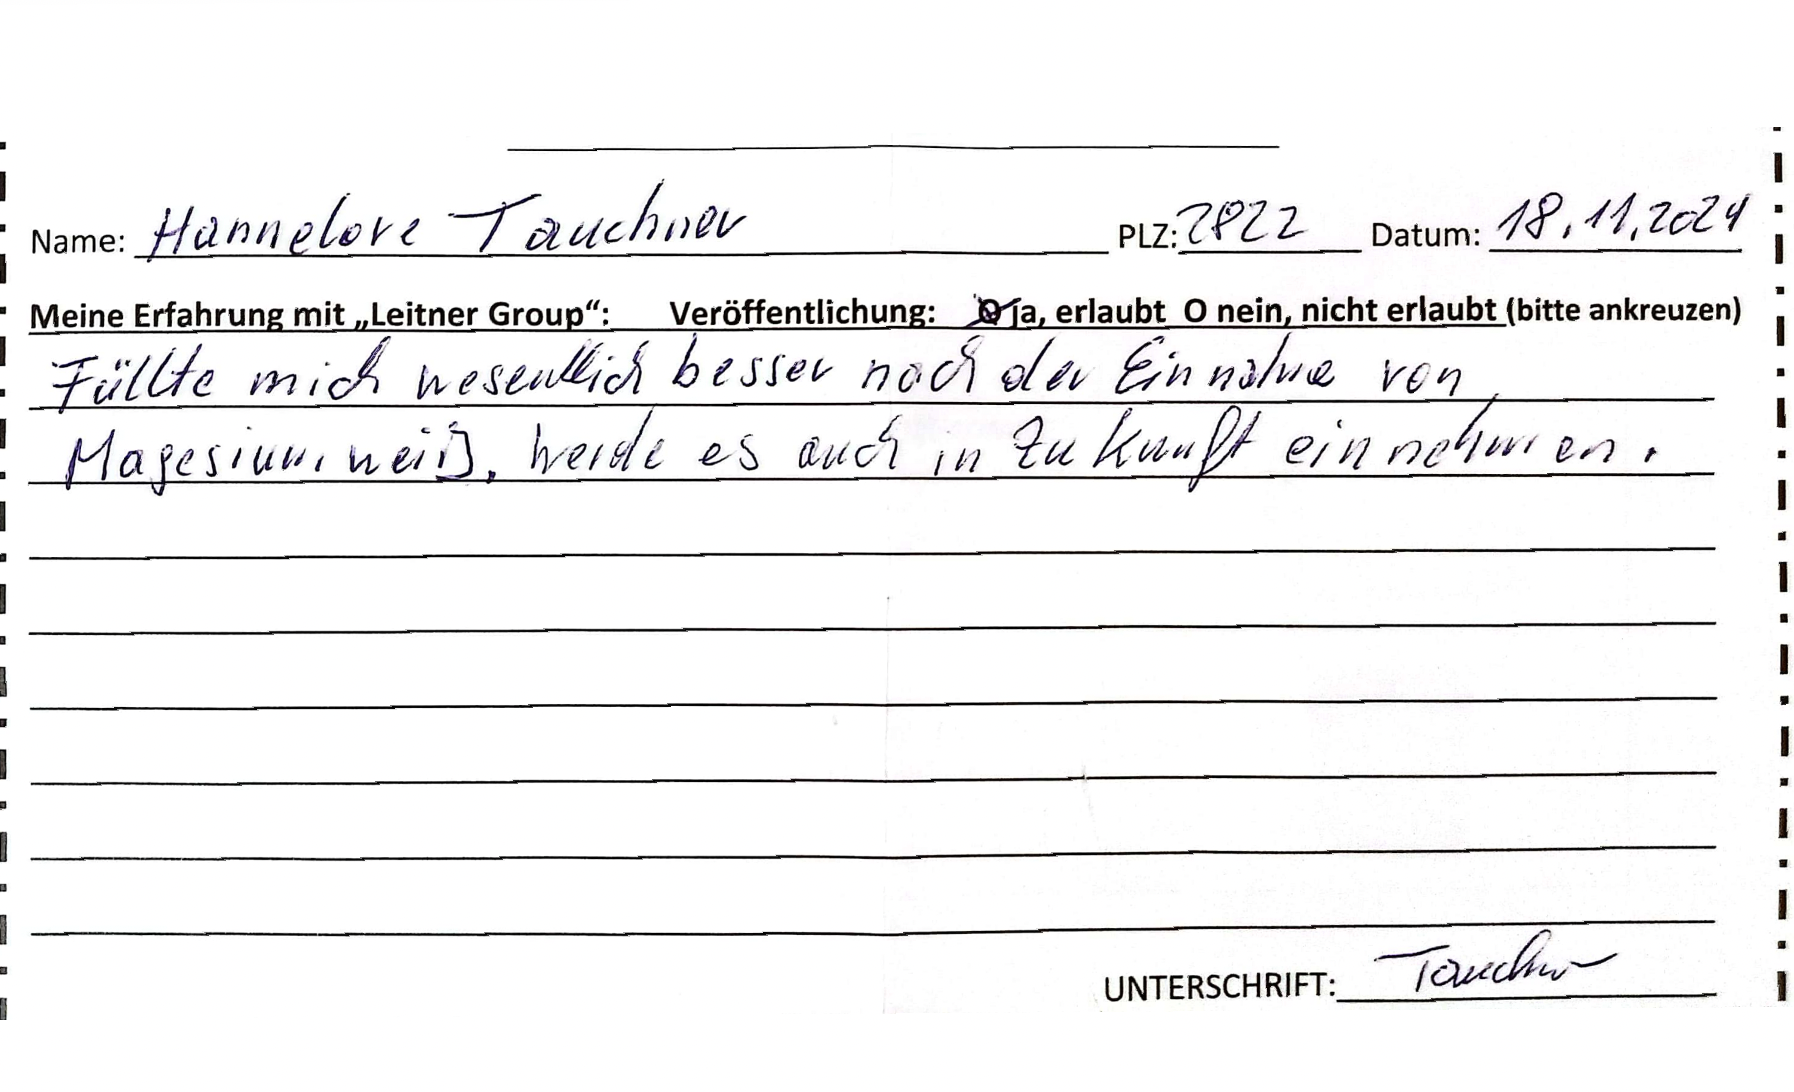 Name: Hannelore Tauchner PLZ: 2822 Datum: 18.11.2024
Meine Erfahrung mit „Leitner Group“: Veröffentlichung: O ja, erlaubt O nein, nicht erlaubt (bitte ankreuzen)
Füllte mich wesentlich besser nach der Einnahme von
Magesium weiß, werde es auch in Zukunft einnehmen.
UNTERSCHRIFT: Tauchner